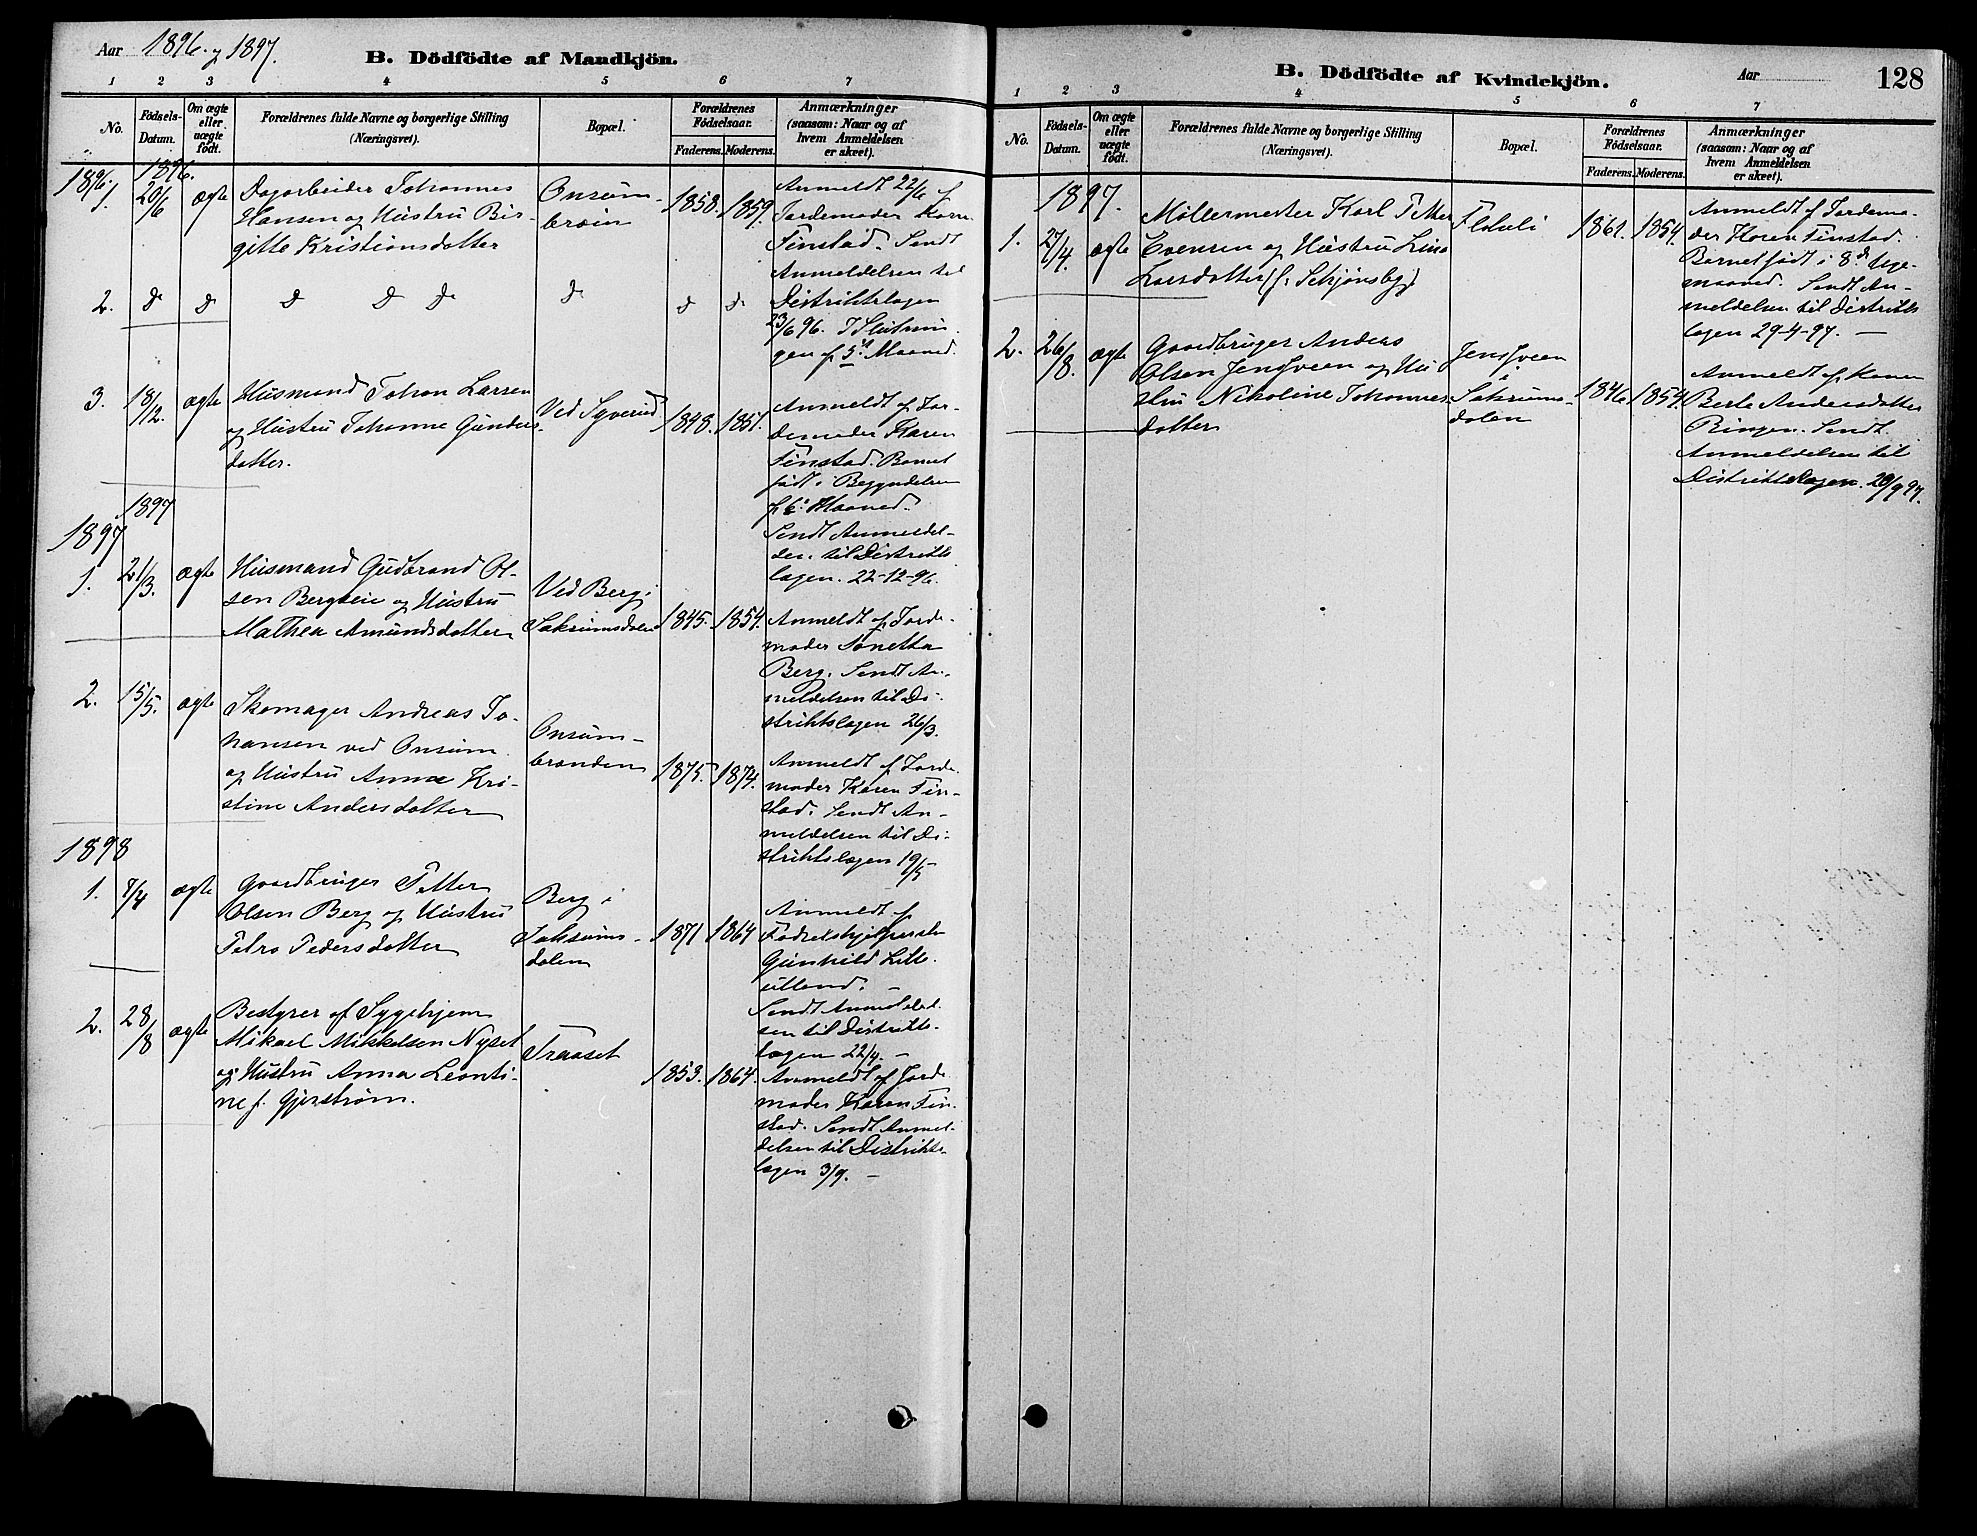 Aar 1896. og 1897.
B. Dödfödte af Mandkjön.
1 2 3 4 5 6 7
No.
Födsels-
Datum.
Om ægte
eller
uægte
født.
Forældrenes fulde Navne og borgerlige Stilling
(Næringsvei).
Bopæl.
Forældrenes
Födselsaar.
Faderens. Moderens.
Anmærkninger
(saasom: Naar og af
hvem Anmeldelsen
er skeet).
1896.
1896.
1. 20/6 ægte
Dagarbeider Johannes
Hansen og Hustru Bir-
gitte Kristiansdatter
Onsum-
1858. 1859.
Anmeldt 22/6 af
Jordemoder Karen
Finstad. Sendt
Anmeldelsen til
Distriktslægen
23/6 96. I Slutnin-
gen af 5te Maaned.
2. do do do do do do do do
3. 18/12. ægte
Husmand Johan Larsen
og Hustru Johanne Gunders-
datter.
Ved Syverud
1848. 1851.
Anmeldt af Jor-
demoder Karen
Finstad. Barnet
født i Begyndelsen
af 6. Maaned.
Sendt Anmeldel-
sen til Distrikts
lægen. 22-12-96.
1897
1897
1. 21/3. ægte
Husmand Gudbrand Ol-
sen Bergseie og Hustru
Mathea Amundsdatter
Ved Berg i
Saksumsdalen
1845. 1854.
Anmeldt af Jorde-
moder
Berg. Sendt An-
meldelsen til Di-
striktslægen 26/3.
2. 15/5. ægte
Skomager Andreas Jo-
hansen ved Onsum
og Hustru Anna Kri-
stine Andersdatter
Onsum-
branden
1875. 1874.
Anmeldt af Jorde-
moder Karen Fin-
stad. Sendt An-
meldelsen til Di-
striktslægen 19/5
1898
1. 7/4 ægte
Gaardbruger Petter
Olsen Berg og Hustru
Petra Pedersdatter
Berg i
Saksums-
dalen
1871 1864
Anmeldt af
Gunhild Lille-
utland. -
Sendt Anmeldel-
sen til Distrikts-
lægen 22/4. -
2. 28/8 ægte
Bestyrer af Sygehjem
Mikael Mikkelsen Nyset
og Hustru Anna Leonti-
ne f. Gjerstrøm.
Traaset
1853. 1864.
Anmeldt af Jorde
moder Karen Fin-
stad. Sendt Anmel-
delsen til Distrikts-
lægen 3/9. -
B. Dödfödte af Kvindekjön.
Aar
128
1 2 3 4 5 6 7
No.
Födsels-
Datum.
Om ægte
eller
uægte
født.
Forældrenes fulde Navne og borgerlige Stilling
(Næringsvei).
Bopæl.
Forældrenes
Födselsaar.
Faderens. Moderens.
Anmærkninger
(saasom: Naar og af
hvem Anmeldelsen
er skeet).
1897.
1. 27/4. ægte
Møllermester Karl Petter
Evensen og Hustru Lina
Larsdatter (f. Skjønsby)
1861. 1854.
Anmeldt af Jordemo-
der Karen Finstad.
Barnet født i 8de
maaned. Sendt An-
meldelsen til Distrikts
lægen 29-4-97. -
2. 26/8. ægte
Gaardbruger Anders
Olsen Jensveen og Hu-
stru Nikoline Johannes-
datter
Jensveen
i
Saksums-
dalen
1846. 1854.
Anmeldt af Konen
Berte Andersdatter
Ringen. Sendt
Anmeldelsen til
Distriktslægen. 20/9 97.